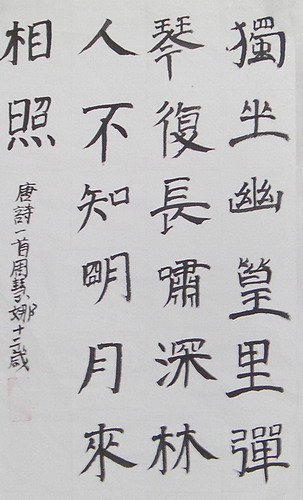 獨坐幽篁里彈
琴復長嘯深林
人不知明月來
相照
唐詩一首周慧娜十二歲